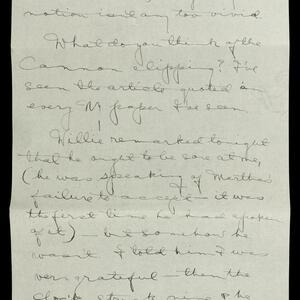 notion isn't any too vivid.
What do you think of the
Cannon clipping? I've
seen the article quoted in
every N paper I've seen
Willie remarked tonight
that he ought to be sore at me,
(he was speaking of Martha's
failure to accept – it was
the first time he had spoken
of it) – but somehow he
wasn't. I told him I was
very grateful – then the
clock struck nine & he